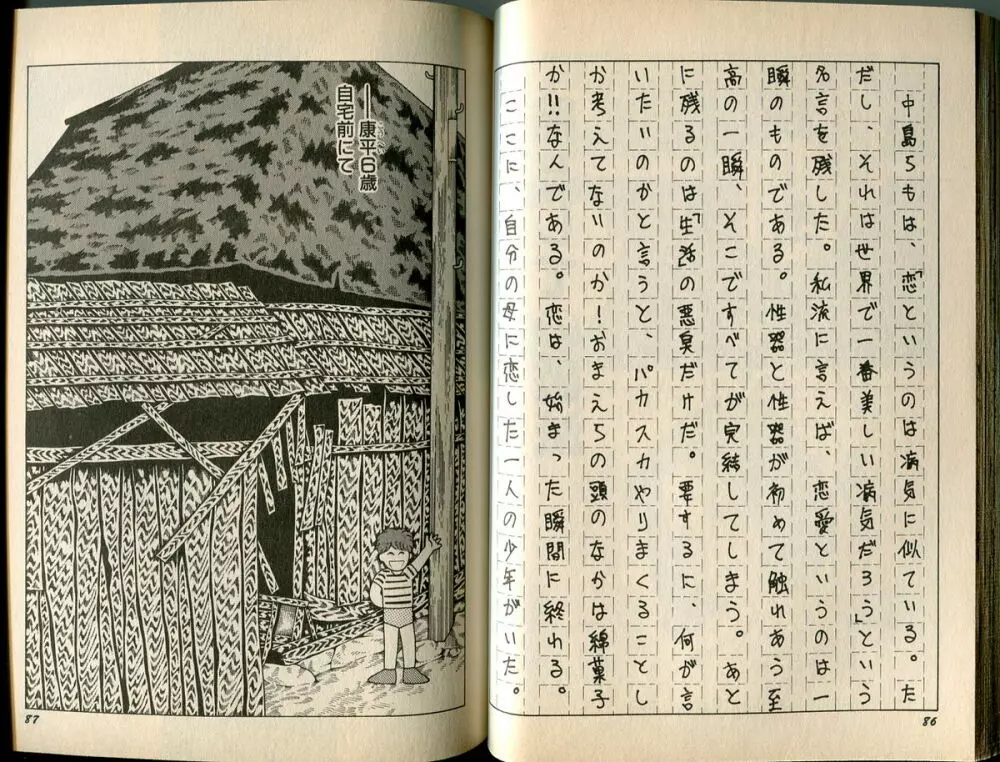 中島らもは、「恋というのは病気に似ている。た
だし、それは世界で一番美しい病気だろう」という
名言を残した。私流に言えば、恋愛というのは一
瞬のものである。性器と性器が初めて触れあう至
高の一瞬、そこですべてが完結してしまう。あと
に残るのは「生活の悪臭だけだ。要するに、何が言
いたいのかと言うと、パカスカやりまくることし
か考えてないのか!おまえらの頭のなかは綿菓子
か!!なんである。恋は、始まった瞬間に終わる。
ここに、自分の母に恋した一人の少年がいた。
86
──康平6歳
自宅前にて
87